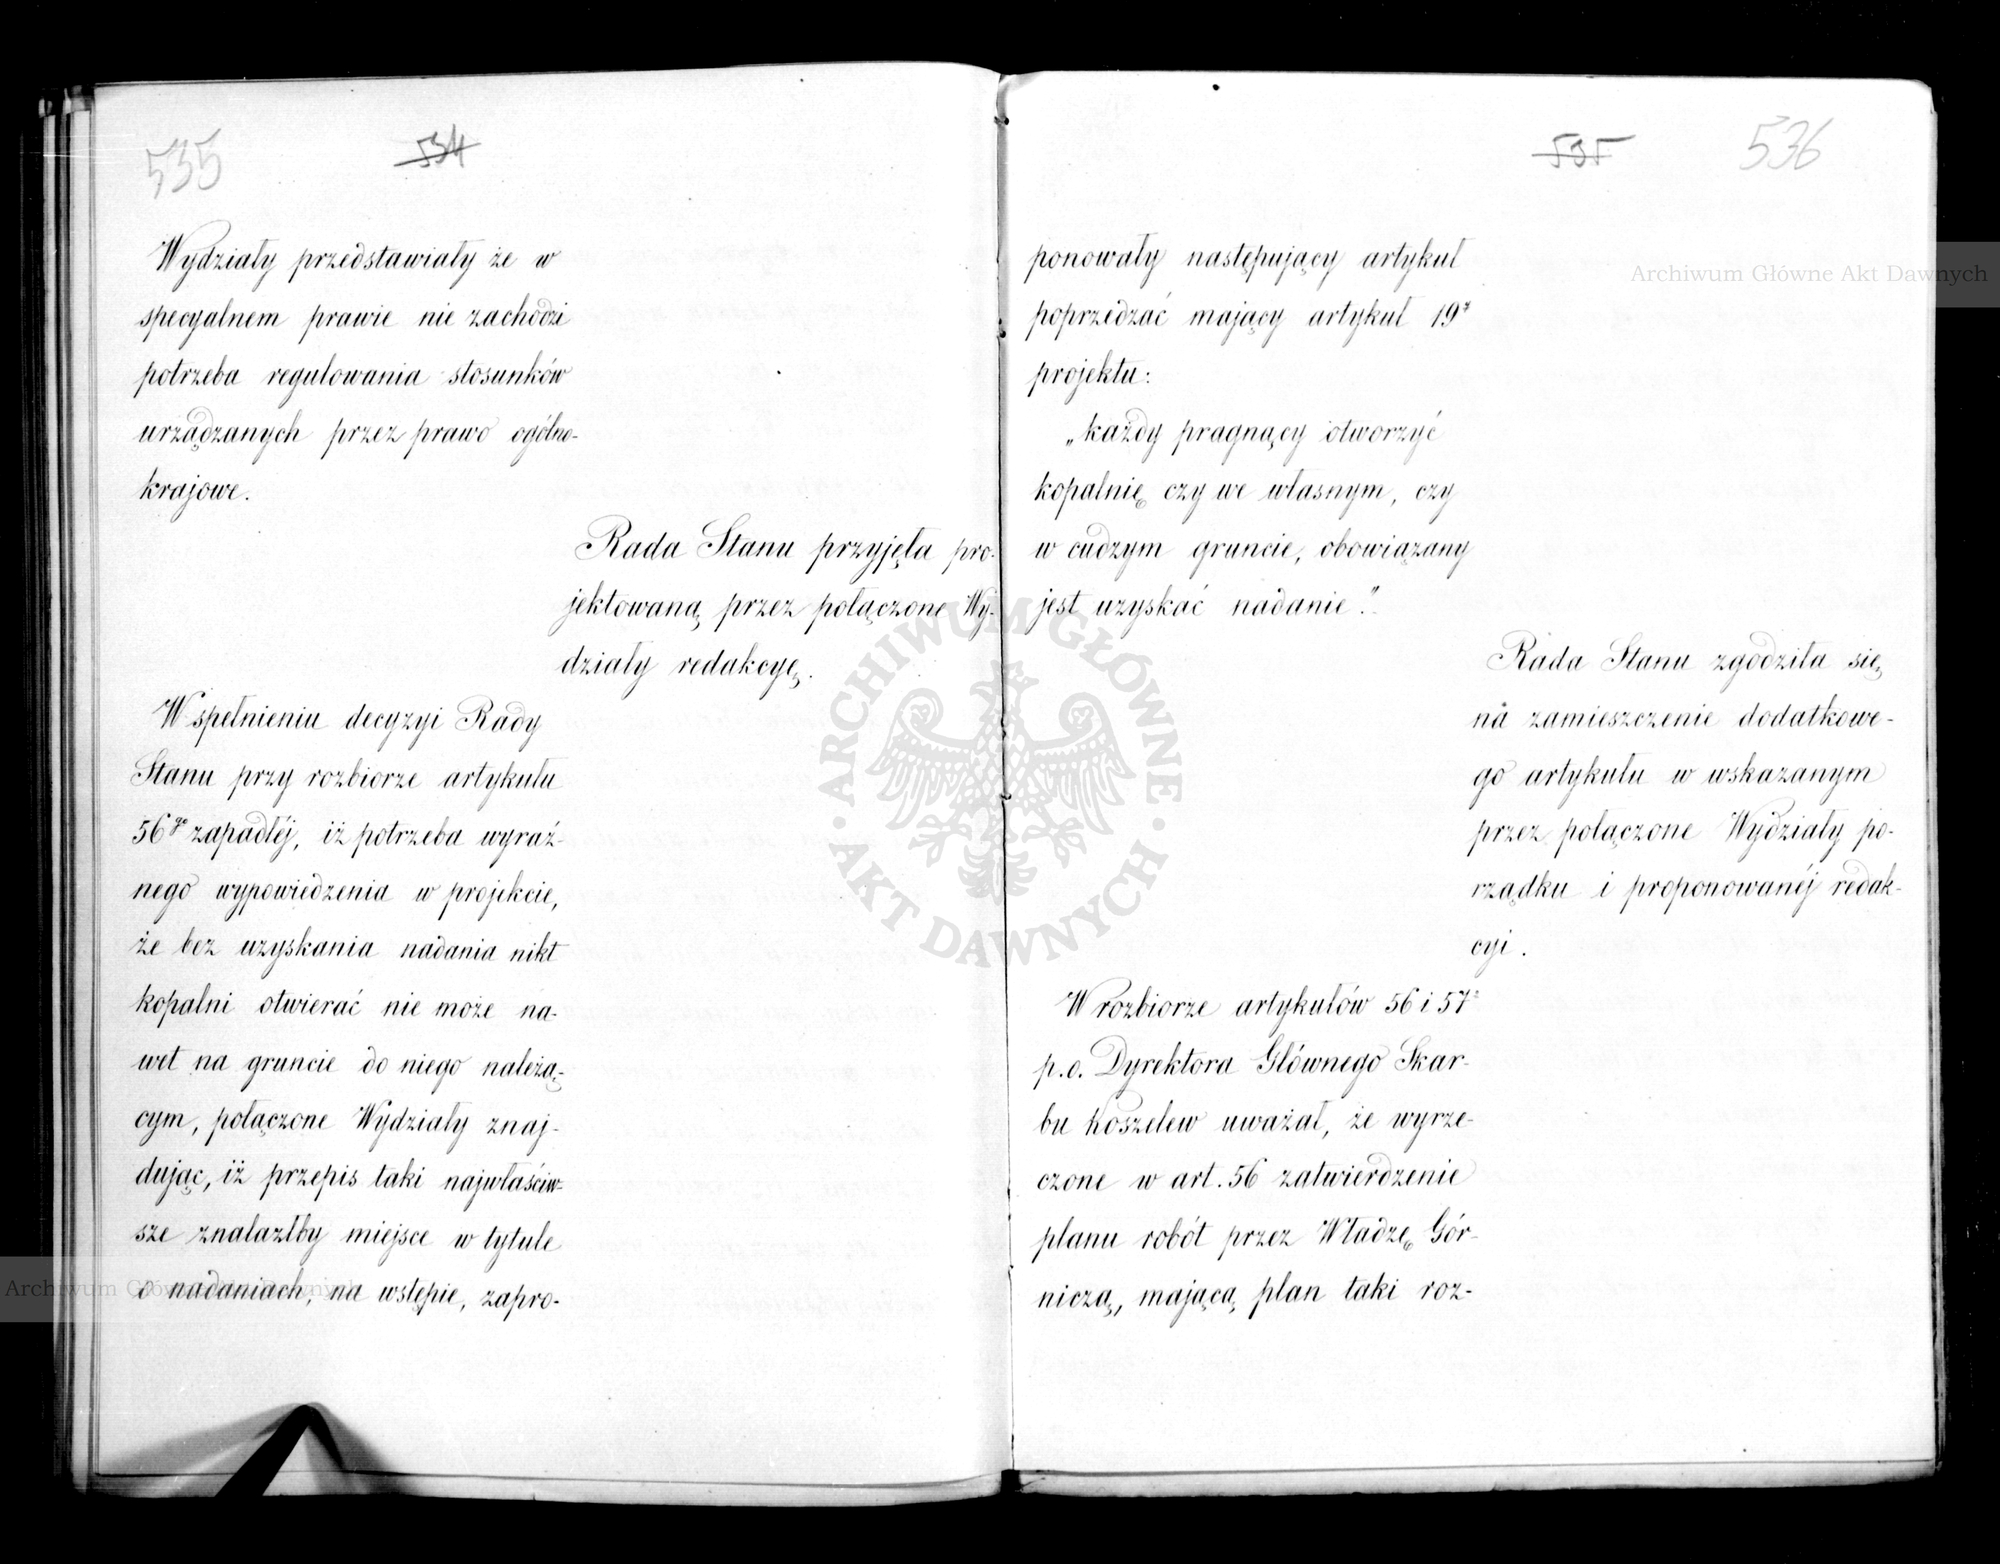 535
534
Wydziały przedstawiały że w
specyalnem prawie nie zachodzi
potrzeba regulowania stosunków
urządzanych przez prawo ogólno-
krajowe.
Rada Stanu przyjęła pro-
jektowaną przez połączone Wy-
działy redakcyę.
W spełnieniu decyzyi Rady
Stanu przy rozbiorze artykułu
56go zapadłéj, iż potrzeba wyraź-
nego wypowiedzenia w projekcie,
że bez uzyskania nadania nikt
kopalni otwierać nie może na-
wet na gruncie do niego należą-
cym, połączone Wydziały znaj-
dując, iż przepis taki najwłaściw-
sze znalazłby miejsce w tytule
o nadaniach, na wstępie, zapro-
535
536
ponowały następujący artykuł
poprzedzać mający artykuł 19y
projektu:
„każdy pragnący otworzyć
kopalnię czy we własnym, czy
w cudzym gruncie, obowiązany
jest uzyskać nadanie."
Rada Stanu zgodziła się
na zamieszczenie dodatkowe-
go artykułu w wskazanym
przez połączone Wydziały po-
rządku i proponowanéj redak-
cyi.
W rozbiorze artykułów 56 i 57
p.o. Dyrektora Głównego Skar-
bu Koszelew uważał, że wyrze-
czone w art. 56 zatwierdzenie
planu robót przez Władzę Gór-
niczą, mającą plan taki roz-
Archiwum Główne Akt Dawnych
ARCHIWUM GŁÓWNE · AKT DAWNYCH ·
Archiwum Główne Akt Dawnych